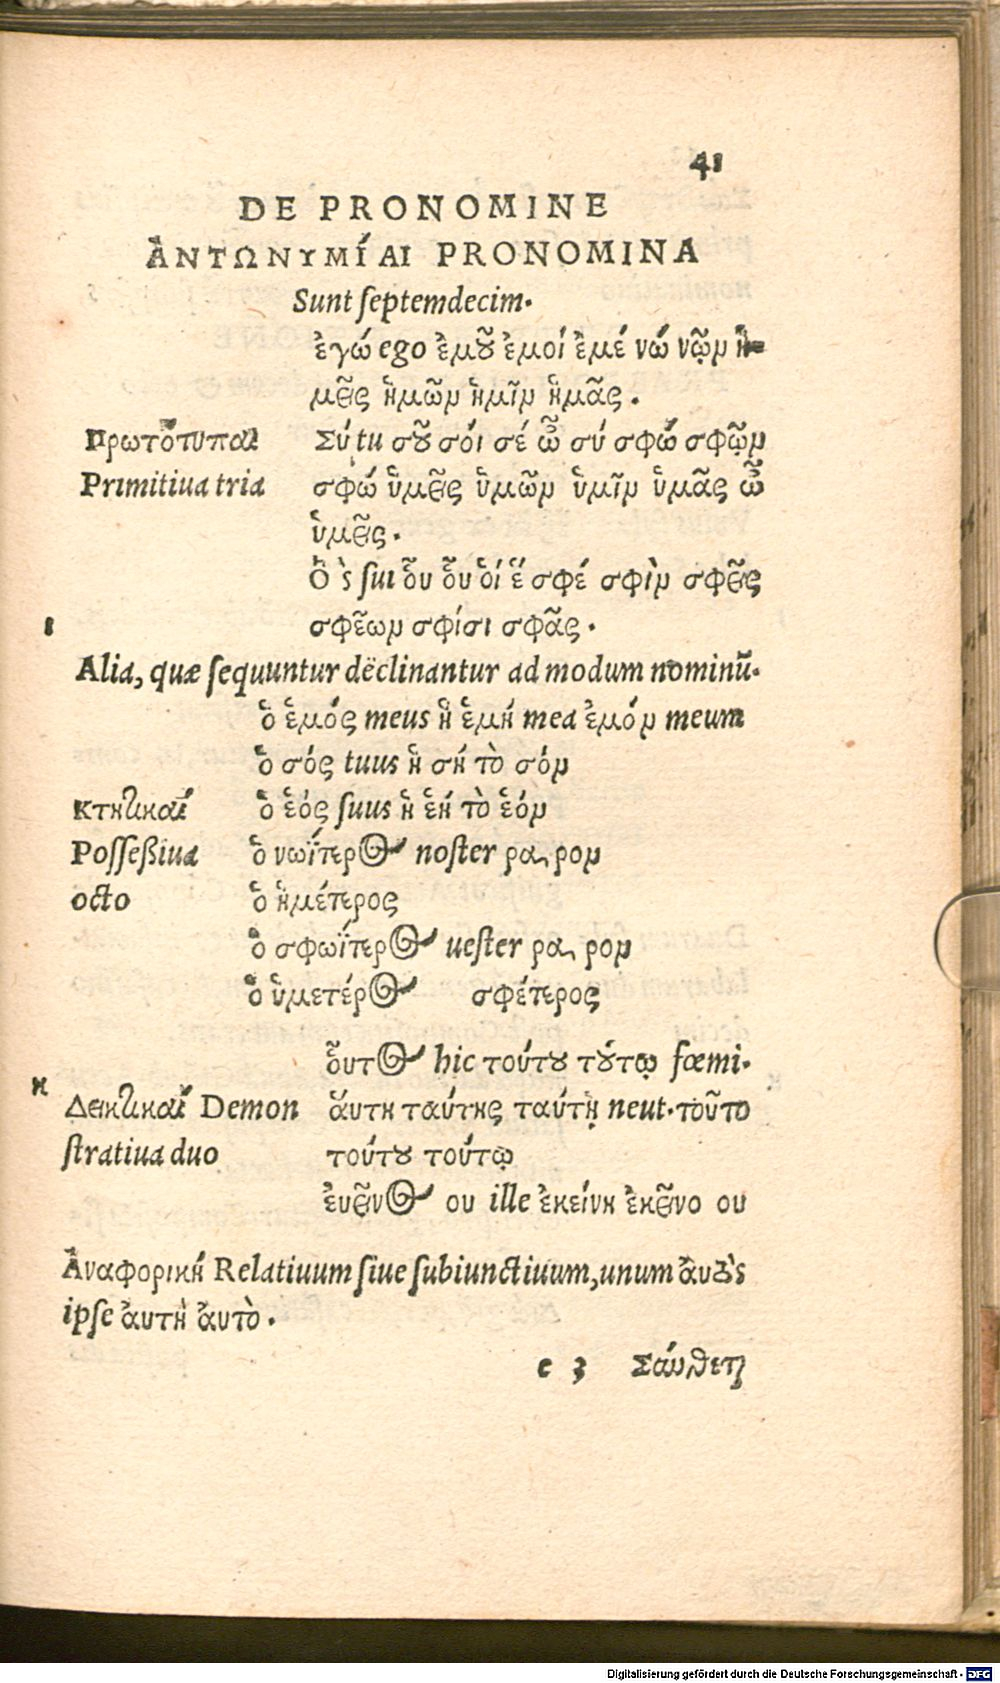 41
DE PRONOMINE
ἈΝΤΩΝΥΜΊΑΙ PRONOMINA
Sunt ſeptemdecim.
ἐγώ ego ἐμοῦ ἐμοί ἐμέ νώ νῶϊν ἡ-
μεῖς ἡμῶν ἡμῖν ἡμᾶς.
Πρωτότυπαι Σύ tu σοῦ σόι σέ ὦ σύ σφώ σφῶϊν
Primitiua tria σφώ ὑμεῖς ὑμῶν ὑμῖν ὑμᾶς ὦ
ὑμεῖς.
Ὁ ὃς ſui οὗ οὗ οἱ ἕ σφέ σφὶν σφεῖς
ι σφέων σφίσι σφᾶς.
Alia, quæ ſequuntur declinantur ad modum nominū.
ὁ ἐμός meus ἡ ἐμή mea ἐμόν meum
ὁ σός tuus ἡ σή τὸ σόν
κτητικαί ὁ ἑός ſuus ἡ ἑή τὸ ἑόν
Poſſeßiua ὁ νωΐτερος noſter ρα, ρον
octo ὁ ἡμέτερος
ὁ σφωΐτερος ueſter ρα, ρον
ὁ ὑμετέρος σφέτερος
οὗτος hic τούτου τούτῳ fœmi.
κ Δεικτικαί Demon ἅυτη ταύτης ταύτῃ neut. τοῦτο
ſtratiua duo τούτου τούτῳ
ἐκεῖνος ου ille ἐκείνη ἐκεῖνο ου
Ἀναφορική Relatiuum ſiue ſubiunctiuum, unum ἀυτὸς
ipſe ἀυτὴ ἀυτὸ.
e 3 Σύνθετοι
Digitalisierung gefördert durch die Deutsche Forschungsgemeinschaft - DFG